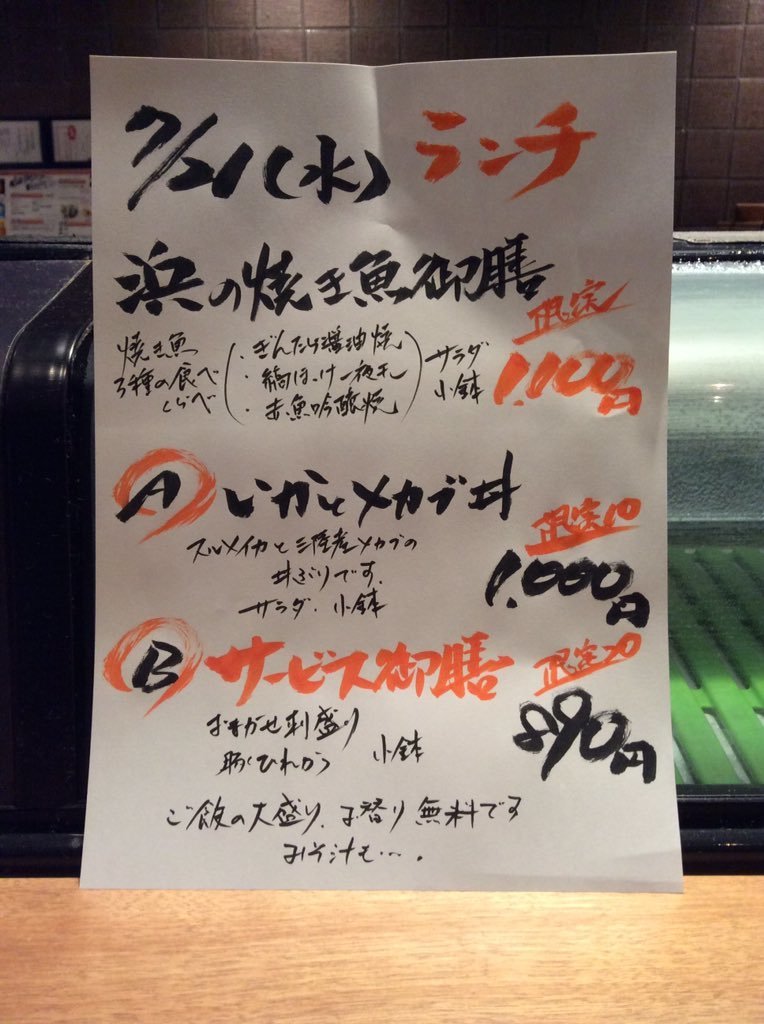 7/21(水) ランチ
浜の焼き魚御膳
限定
1,100円
焼き魚
3種の食べ
くらべ
・ぎんだら醤油焼
・縞ほっけ一夜干
・赤魚吟醸焼
サラダ
小鉢
A いかとメカブ丼
限定10
1,000円
スルメイカと三陸産メカブの
丼ぶりです。
サラダ、小鉢
B サービス御膳
限定20
890円
おまかせ刺盛り
豚ひれかつ
小鉢
ご飯の大盛り、お替り無料です
みそ汁も…。